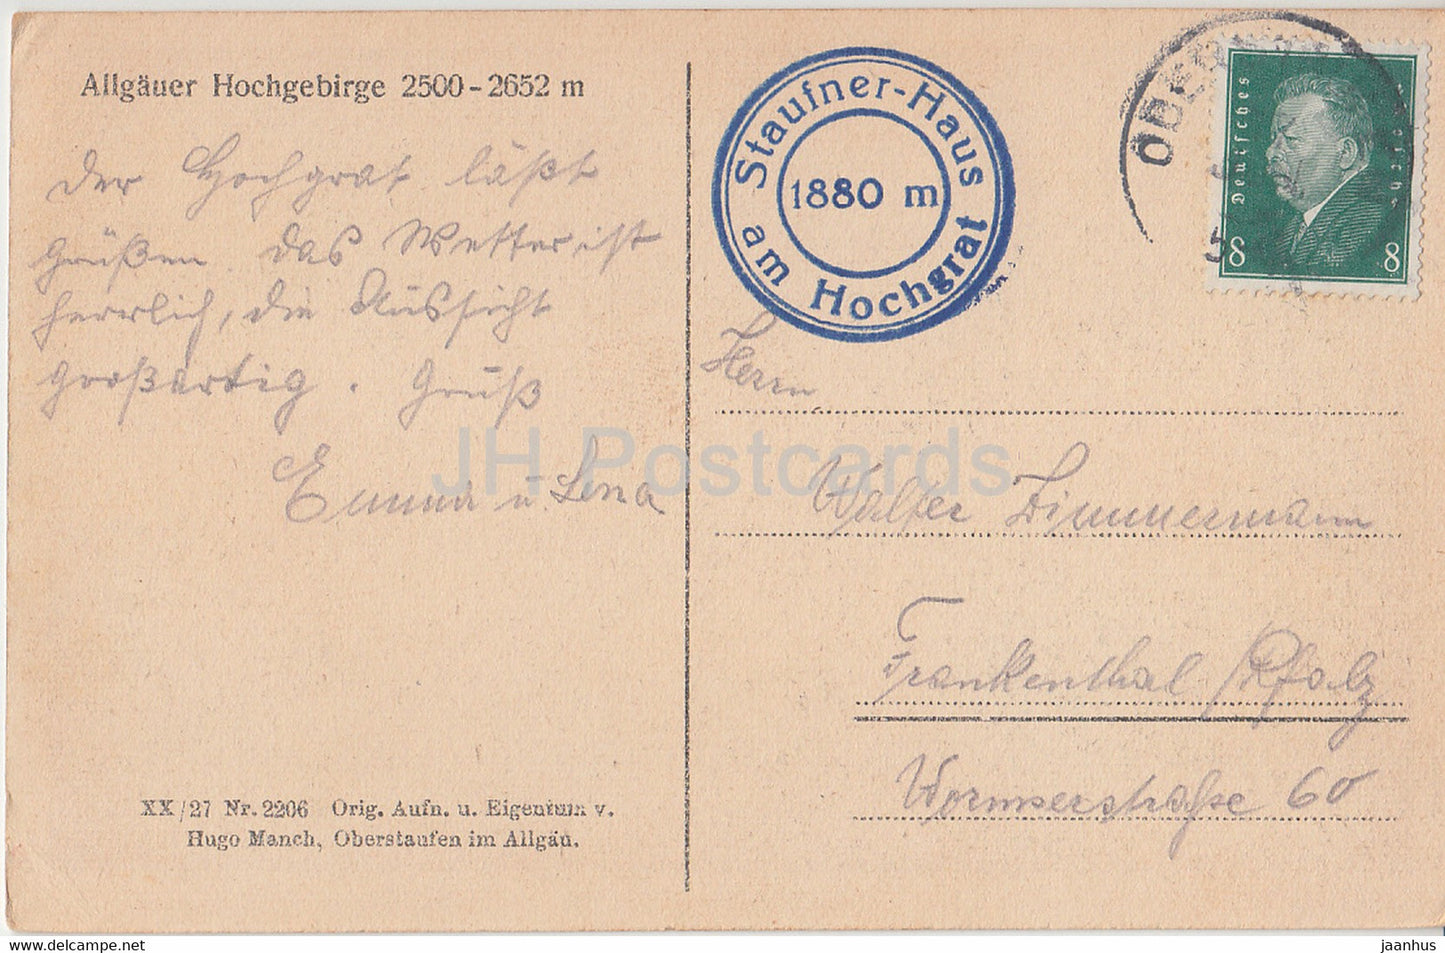 Allgäuer Hochgebirge 2500-2652 m
der Hochgrat läßt
grüßen. das Wetter ist
herrlich, die Aussicht
großartig. Gruß
Emma u Lena
XX/27 Nr. 2206 Orig. Aufn. u. Eigentum v.
Hugo Manch, Oberstaufen im Allgäu.
Staufner-Haus
1880 m
am Hochgrat
Deutsches Reich
8 8
Herrn
Walter Zimmermann
Frankenthal /Pfalz
Wormserstraße 60
JH Postcards
delcampe.net
jaanhus